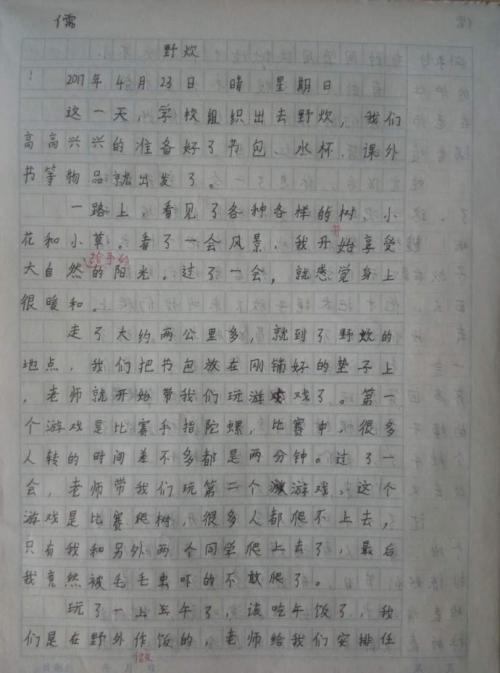 儒
野炊
2017年4月23日 晴 星期日
这一天，学校组织出去野炊，我们
高高兴兴的准备好了书包、水杯、课外
书等物品就出发了。
一路上，看见了各种各样的树、小
花和小草，看了一会风景，我开始享受
给予的
大自然的阳光。过了一会，就感觉身上
很暖和。
走了大约两公里多，就到了野炊的
地点，我们把书包放在刚铺好的垫子上
，老师就开始带我们玩游戏了。第一
个游戏是比赛手指陀螺，比赛中，很多
人转的时间差不多都是两分钟。过了一
会，老师带我们玩第二个游戏，这个
游戏是比赛爬树，很多人都爬不上去，
只有我和另外两个同学爬上去了，最后
我竟然被毛毛虫吓的不敢爬了。
玩了一上午了，该吃午饭了，我
们是在野外作饭的，老师给我们安排任